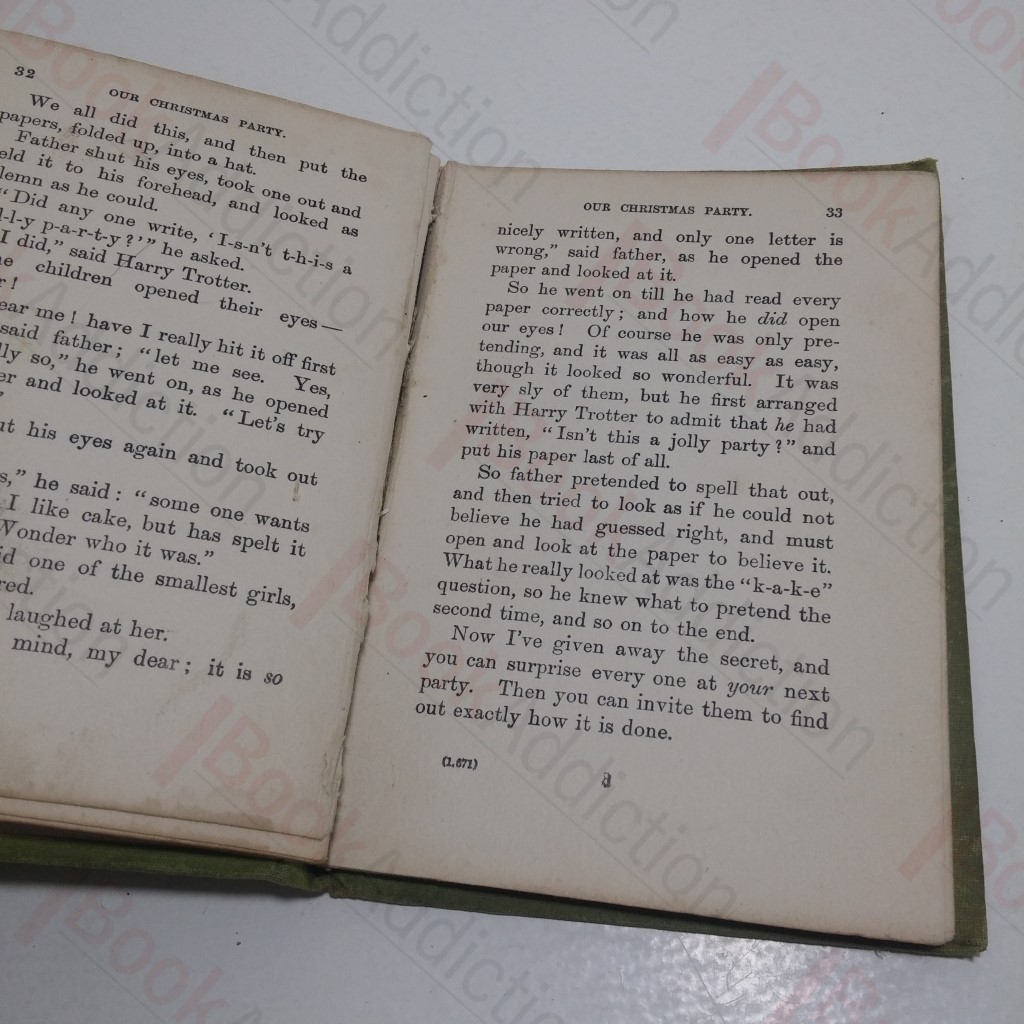 32
OUR CHRISTMAS PARTY.
We all did this, and then put the
papers, folded up, into a hat.
Father shut his eyes, took one out and
eld it to his forehead, and looked as
lemn as he could.
"Did any one write, 'I-s-n't t-h-i-s a
l-l-y p-a-r-t-y?'" he asked.
I did," said Harry Trotter.
e children opened their eyes—
r!
ear me! have I really hit it off first
said father; "let me see. Yes,
lly so," he went on, as he opened
er and looked at it. "Let's try
ut his eyes again and took out
s," he said: "some one wants
I like cake, but has spelt it
Wonder who it was."
id one of the smallest girls,
red.
laughed at her.
mind, my dear; it is so
OUR CHRISTMAS PARTY.
33
nicely written, and only one letter is
wrong," said father, as he opened the
paper and looked at it.
So he went on till he had read every
paper correctly; and how he did open
our eyes! Of course he was only pre-
tending, and it was all as easy as easy,
though it looked so wonderful. It was
very sly of them, but he first arranged
with Harry Trotter to admit that he had
written, "Isn't this a jolly party?" and
put his paper last of all.
So father pretended to spell that out,
and then tried to look as if he could not
believe he had guessed right, and must
open and look at the paper to believe it.
What he really looked at was the "k-a-k-e"
question, so he knew what to pretend the
second time, and so on to the end.
Now I've given away the secret, and
you can surprise every one at your next
party. Then you can invite them to find
out exactly how it is done.
(1,671)
BookAddiction